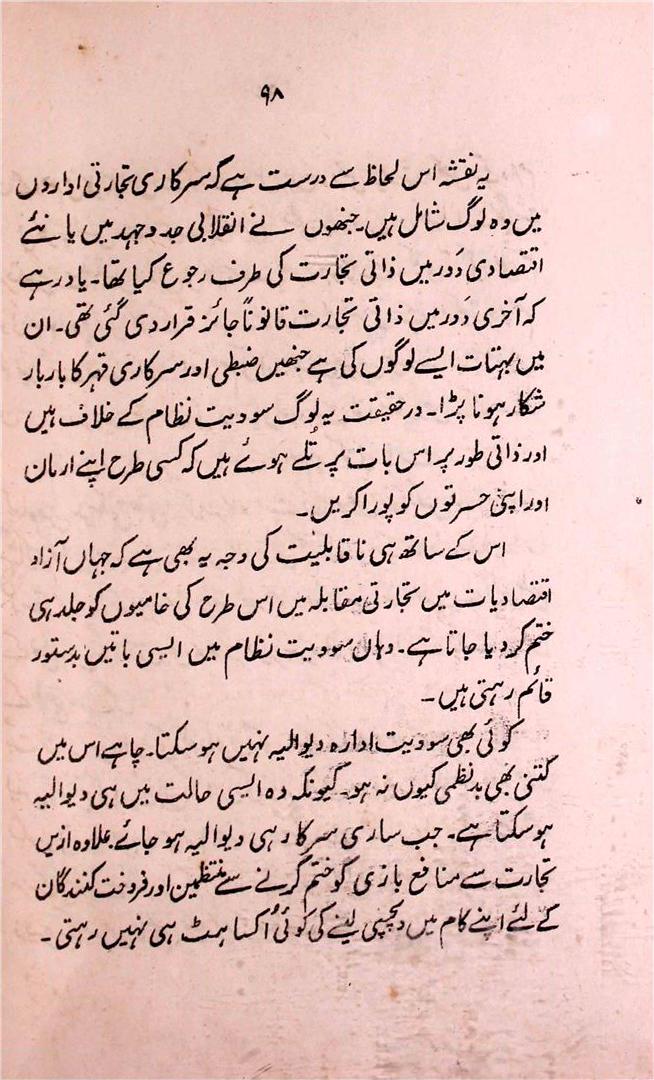 ۹۸
یہ نقشہ اس لحاظ سے درست ہے کہ سرکاری تجارتی اداروں
میں وہ لوگ شامل ہیں۔ جنھوں نے انقلابی جدوجہد میں یا نئے
اقتصادی دَور میں ذاتی تجارت کی طرف رجوع کیا تھا۔ یاد رہے
کہ آخری دَور میں ذاتی تجارت قانوناً جائز قرار دی گئی تھی۔ ان
میں بہتات ایسے لوگوں کی ہے جنھیں ضبطی اور سرکاری قہر کا بار بار
شکار ہونا پڑا۔ در حقیقت یہ لوگ سوویت نظام کے خلاف ہیں
اور ذاتی طور پر اس بات پر تُلے ہوئے ہیں کہ کسی طرح اپنے ارمان
اور اپنی حسرتوں کو پورا کریں۔
اس کے ساتھ ہی ناقابلیت کی وجہ یہ بھی ہے کہ جہاں آزاد
اقتصادیات میں تجارتی مقابلہ میں اس طرح کی خامیوں کو جلد ہی
ختم کر دیا جاتا ہے۔ وہاں سوویت نظام میں ایسی باتیں بدستور
قائم رہتی ہیں۔
کوئی بھی سوویت ادارہ دیوالیہ نہیں ہو سکتا۔ چاہے اس میں
کتنی بھی بدنظمی کیوں نہ ہو۔ کیونکہ وہ ایسی حالت میں ہی دیوالیہ
ہو سکتا ہے۔ جب ساری سرکار ہی دیوالیہ ہو جائے۔ علاوہ ازیں
تجارت سے منافع بازی کو ختم کرنے سے منتظمین اور فروخت کنندگان
کے لئے اپنے کام میں دلچسپی لینے کی کوئی اُکساہٹ ہی نہیں رہتی۔